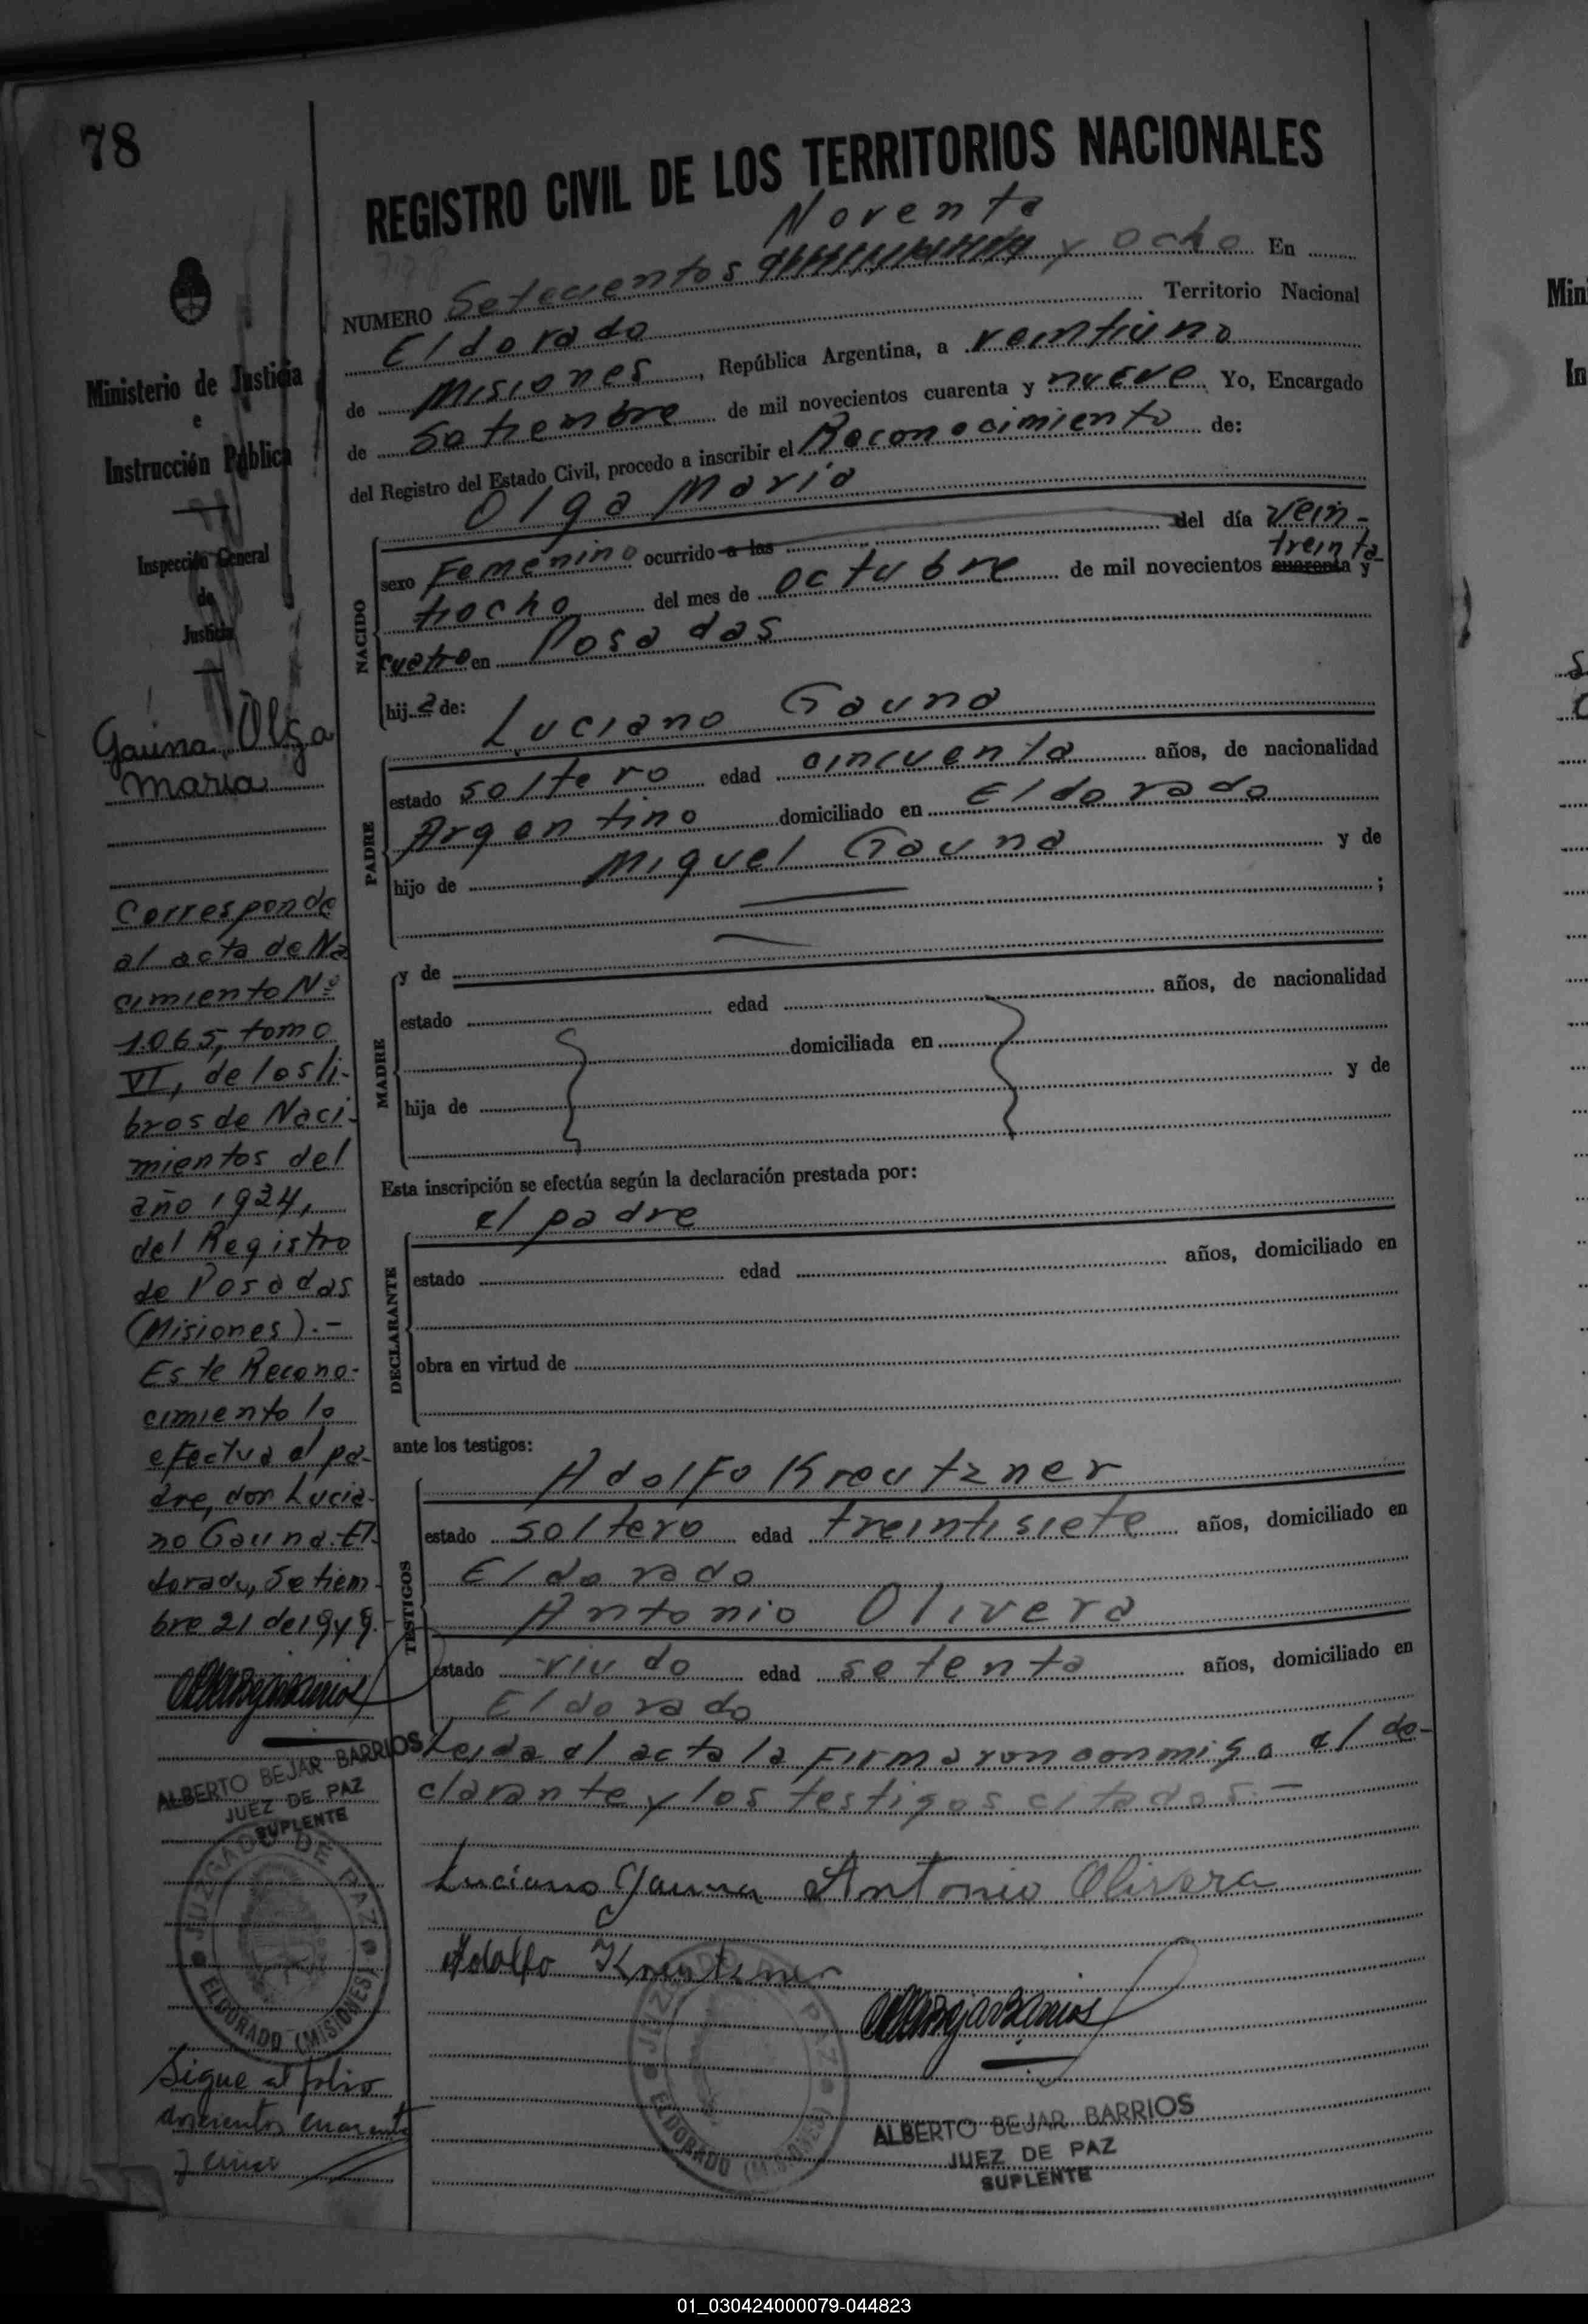 78
REGISTRO CIVIL DE LOS TERRITORIOS NACIONALES
Noventa
NUMERO Setecientos y ocho En
Eldorado Territorio Nacional
de Misiones, República Argentina, a veintiuno
de Setiembre de mil novecientos cuarenta y nueve. Yo, Encargado
del Registro del Estado Civil, procedo a inscribir el Reconocimiento de:
Olga María
NACIDO
sexo Femenino ocurrido a las del día Vein-
treinta
tiocho del mes de octubre de mil novecientos cuarenta y
cuatro en Posadas
hija de:
Luciano Gauna
PADRE
estado soltero edad cincuenta años, de nacionalidad
Argentino domiciliado en Eldorado
hijo de Miguel Gauna y de
;
MADRE
y de
estado edad años, de nacionalidad
domiciliada en
hija de y de
Esta inscripción se efectúa según la declaración prestada por:
el padre
DECLARANTE
estado edad años, domiciliado en
obra en virtud de
ante los testigos:
Adolfo Kreutzner
TESTIGOS
estado soltero edad treintisiete años, domiciliado en
Eldorado
Antonio Olivera
estado viudo edad setenta años, domiciliado en
Eldorado
Leida el acta la Firmaron conmigo el de-
clarante y los testigos citados.—
Luciano Gauna Antonio Olivera
Adolfo Kreutzner
ALBERTO BEJAR BARRIOS
JUEZ DE PAZ
SUPLENTE
JUZGADO DE PAZ
ELDORADO (MISIONES)
Ministerio de Justicia
e
Instrucción Pública
Inspección General
de
Justicia
Gauna Olga
Maria
Corresponde
al acta de Na
cimiento Nº
1.065, tomo
VI, de los li-
bros de Naci-
mientos del
año 1934,
del Registro
de Posadas
(Misiones).-
Este Recono-
cimiento lo
efectua el pa-
dre, don Lucia-
no Gauna. El-
dorado, Setiem-
bre 21 de 1949.-
ALBERTO BEJAR BARRIOS
JUEZ DE PAZ
SUPLENTE
JUZGADO DE PAZ
ELDORADO (MISIONES)
Sigue al folio
doscientos cuarenta
y cinco
Min
In
01_030424000079-044823